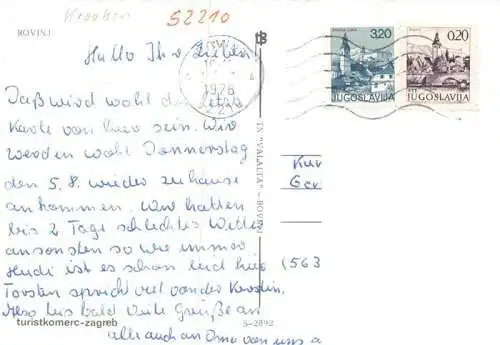 Kroatien 52210
ROVINJ
Hallo Ihr Lieben
1976
3,20
JUGOSLAVIJA
0,20
JUGOSLAVIJA
Daß wird wohl die letzte
Karte von hier sein. Wir
werden wohl Donnerstag
den 5.8. wieder zuhause
ankommen. Wir hatten
bis 2 Tage schlechtes Wetter
ansonsten so wie immer
Heidi ist es schon leid hier
Torsten spricht viel von der Kerstin.
Also bis bald viele Grüße an
alle auch an Oma von uns a
TN "VALALTA" - ROVINJ
(563
turistkomerc-zagreb
S-2892